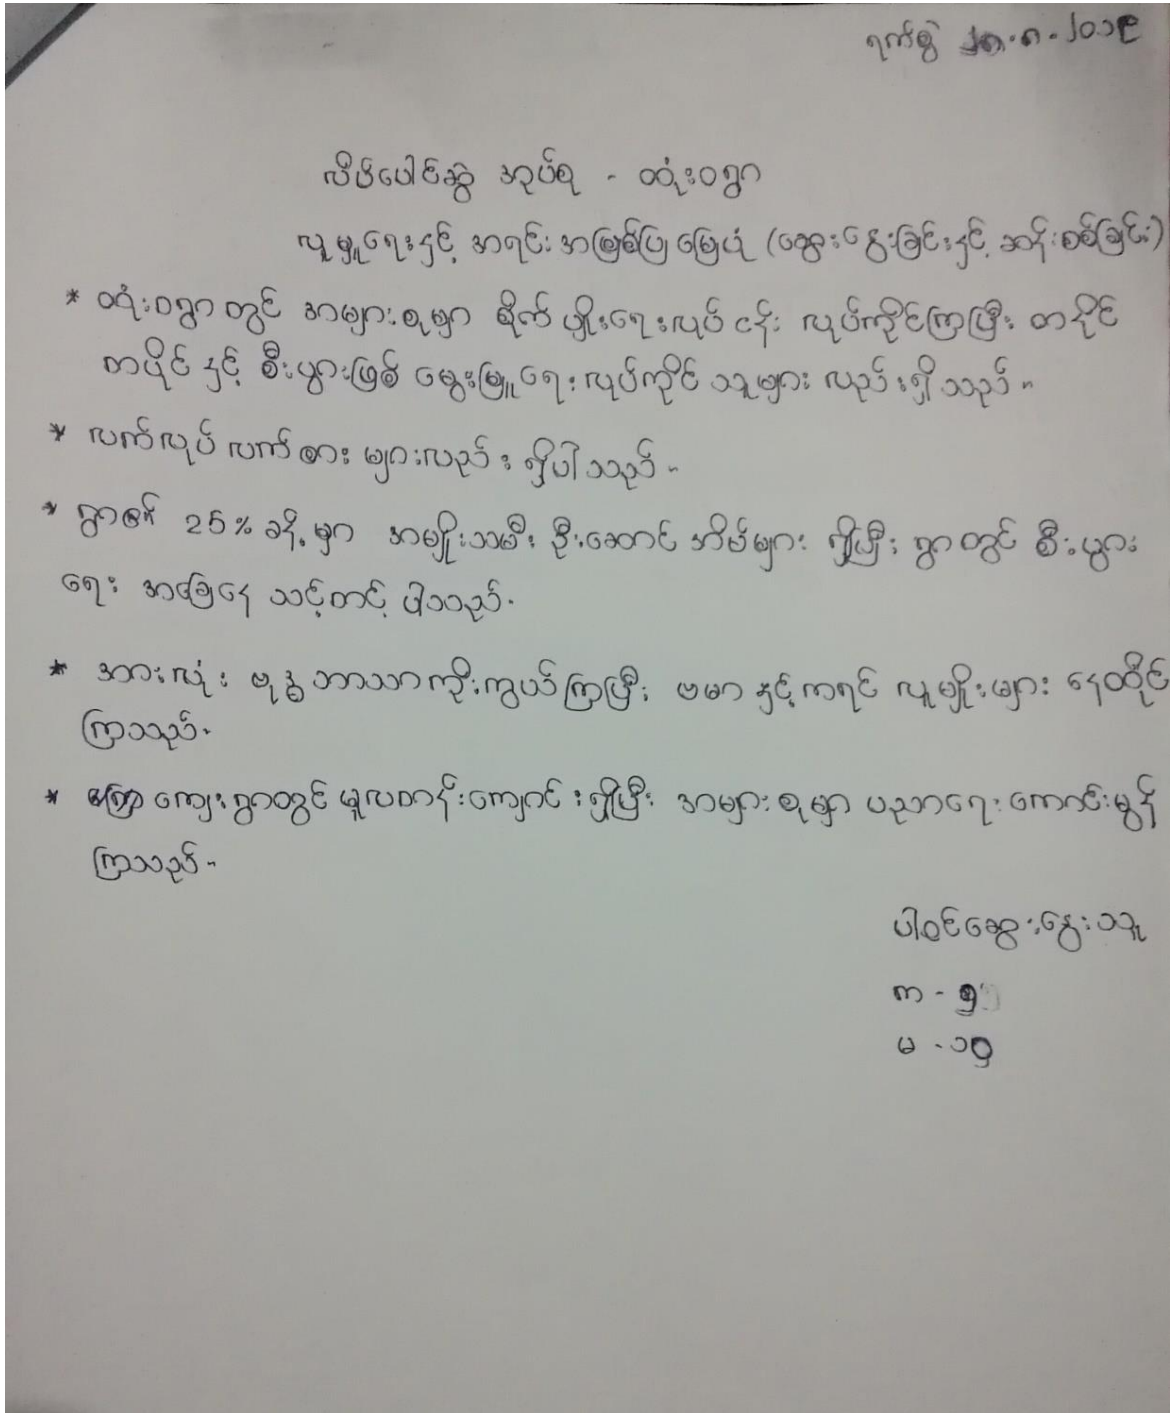 ရက်စွဲ ၂၈.၈.၂၀၁၉
လိမ်ပေါင်ဆွဲ အုပ်စု - ထုံးဝရွာ
လူမှုရေးနှင့် အရင်းအမြစ်ပြ မြေပုံ (ဆွေးနွေးခြင်းနှင့် ဆန်းစစ်ခြင်း)
* ထုံးဝရွာတွင် အများစုမှာ စိုက်ပျိုးရေးလုပ်ငန်း လုပ်ကိုင်ကြပြီး တနိုင်
တပိုင်နှင့် စီးပွားဖြစ် မွေးမြူရေး လုပ်ကိုင်သူများ လည်းရှိသည်။
* လက်လုပ်လက်စား များလည်း ရှိပါသည်။
* ရွာ၏ 25% ခန့်မှာ အမျိုးသမီး ဦးဆောင် အိမ်များ ရှိပြီး ရွာတွင် စီးပွား
ရေး အခြေနေ သင့်တင့်ပါသည်.
* အားလုံး ဗုဒ္ဓဘာသာကိုးကွယ်ကြပြီး ဗမာနှင့်ကရင် လူမျိုးများ နေထိုင်
ကြသည်.
* ကျေးရွာတွင် မူလတန်းကျောင်းရှိပြီး အများစုမှာ ပညာရေးကောင်းမွန်
ကြသည်။
ပါဝင်ဆွေးနွေးသူ
က -
မ - ၁၄